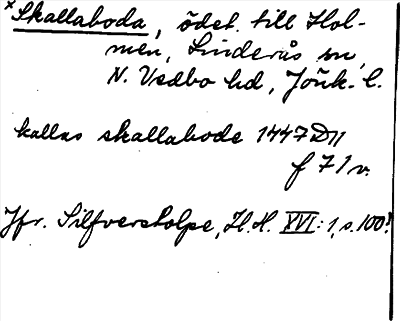 ×Skallaboda, ödet. till Hol-
men, Linderås sn,
N. Vedbo hd, Jönk. l.
kallas skallabode 1447 D11
f 71 v.
Jfr. Silfverstolpe, H.H. XVI:1, s. 100!